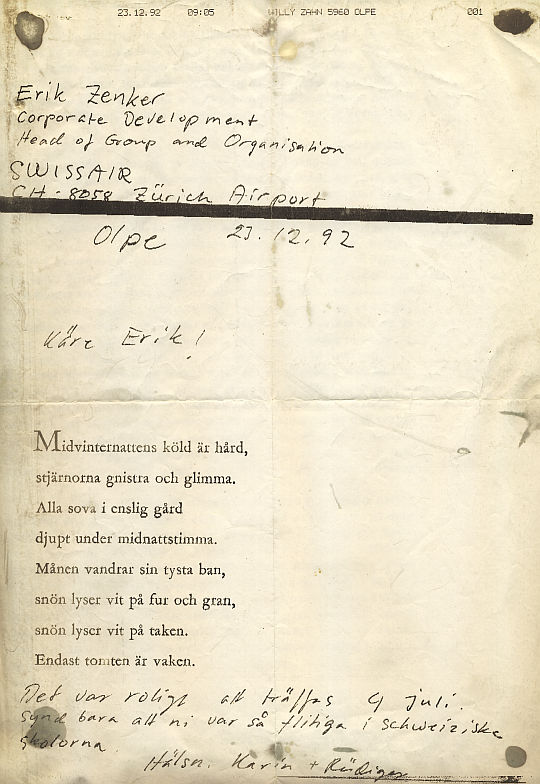 23.12.92 09:05 WILLY ZAHN 5960 OLPE 001
Erik Zenker
Corporate Development
Head of Group and Organisation
SWISSAIR
CH-8058 Zürich Airport
Olpe 23.12.92
Käre Erik!
Midvinternattens köld är hård,
stjärnorna gnistra och glimma.
Alla sova i enslig gård
djupt under midnattstimma.
Månen vandrar sin tysta ban,
snön lyser vit på fur och gran,
snön lyser vit på taken.
Endast tomten är vaken.
Det var roligt att träffas 4 juli.
Synd bara att ni var så flitiga i schweiziska
skolorna.
Hälsn. Karin + Rüdiger